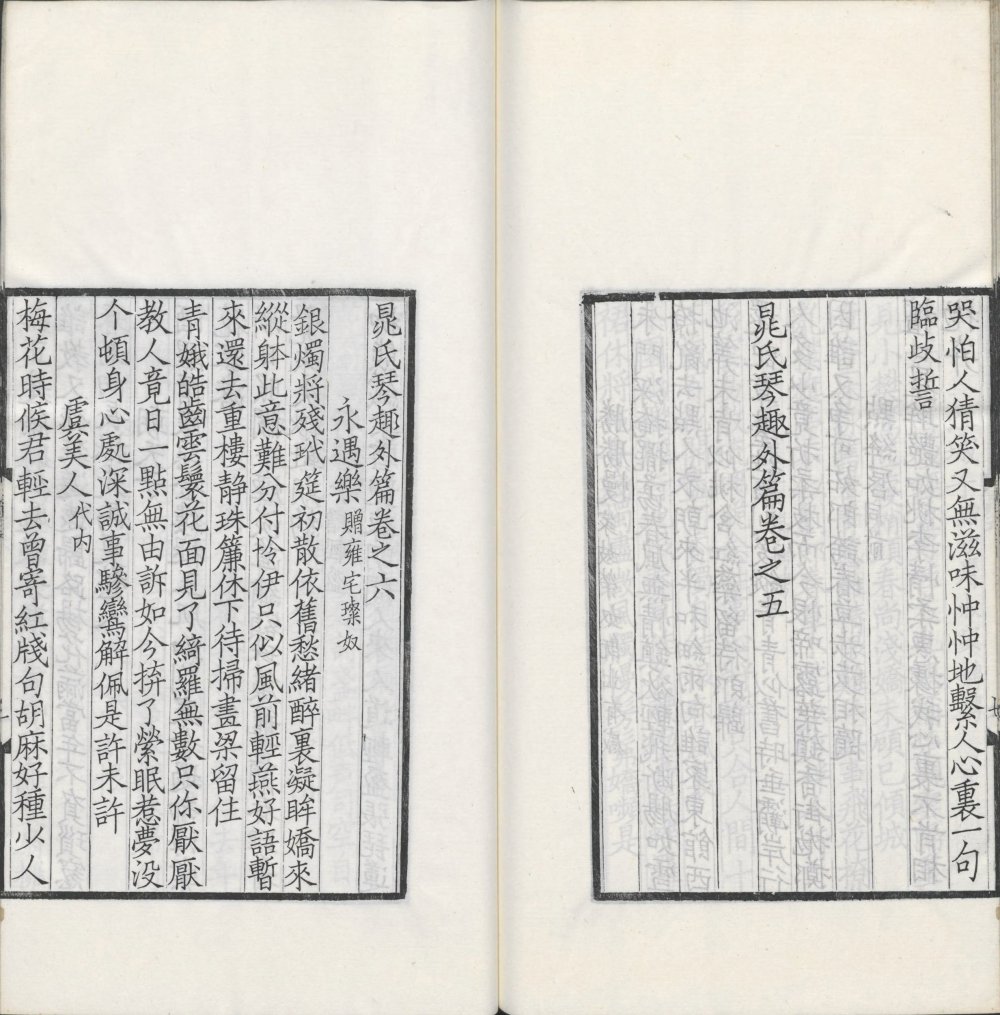 哭怕人猜笑又無滋味忡忡地繫人心裏一句
臨歧誓
晁氏琴趣外篇卷之五
晁氏琴趣外篇卷之六
永遇樂 贈雍宅璨奴
銀燭將殘玳筵初散依舊愁緒醉裏凝眸嬌來
縱躰此意難分付怜伊只似風前輕燕好語暫
來還去重樓静珠簾休下待掃畫梁留住
青娥皓齒雲鬟花面見了綺羅無數只你厭厭
教人竟日一點無由訴如今拚了縈眠惹夢没
个頓身心處深誠事驂鸞解佩是許未許
虞美人 代内
梅花時候君輕去曾寄紅牋句胡麻好種少人